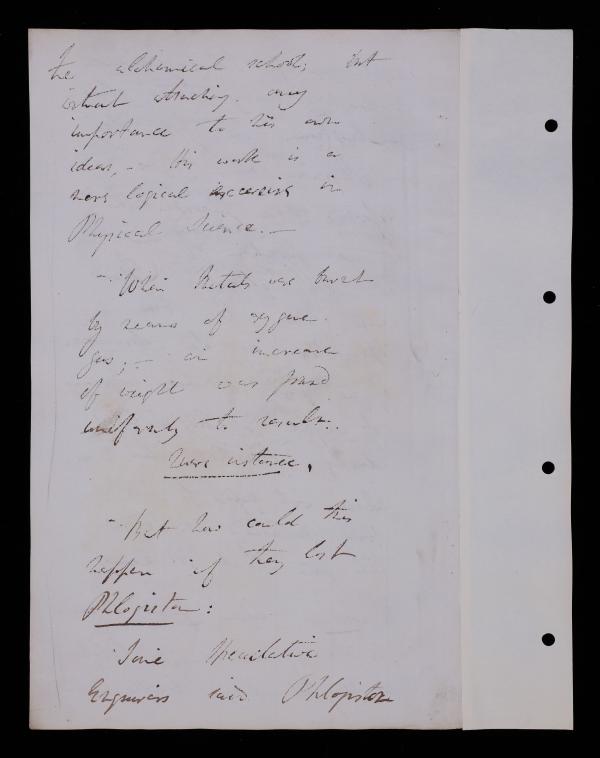 the alchemical school; but
without attaching any
importance to his own
ideas, - His work is a
mere logical exercise in
Physical Science. -
- When Metals were burnt
by means of oxygene
gas; - an increase
of weight was found
uniformly to result:.
instance.
- But how could this
happen if they lost
Phlogiston:
Some Speculative
Enquirers said Phlogiston